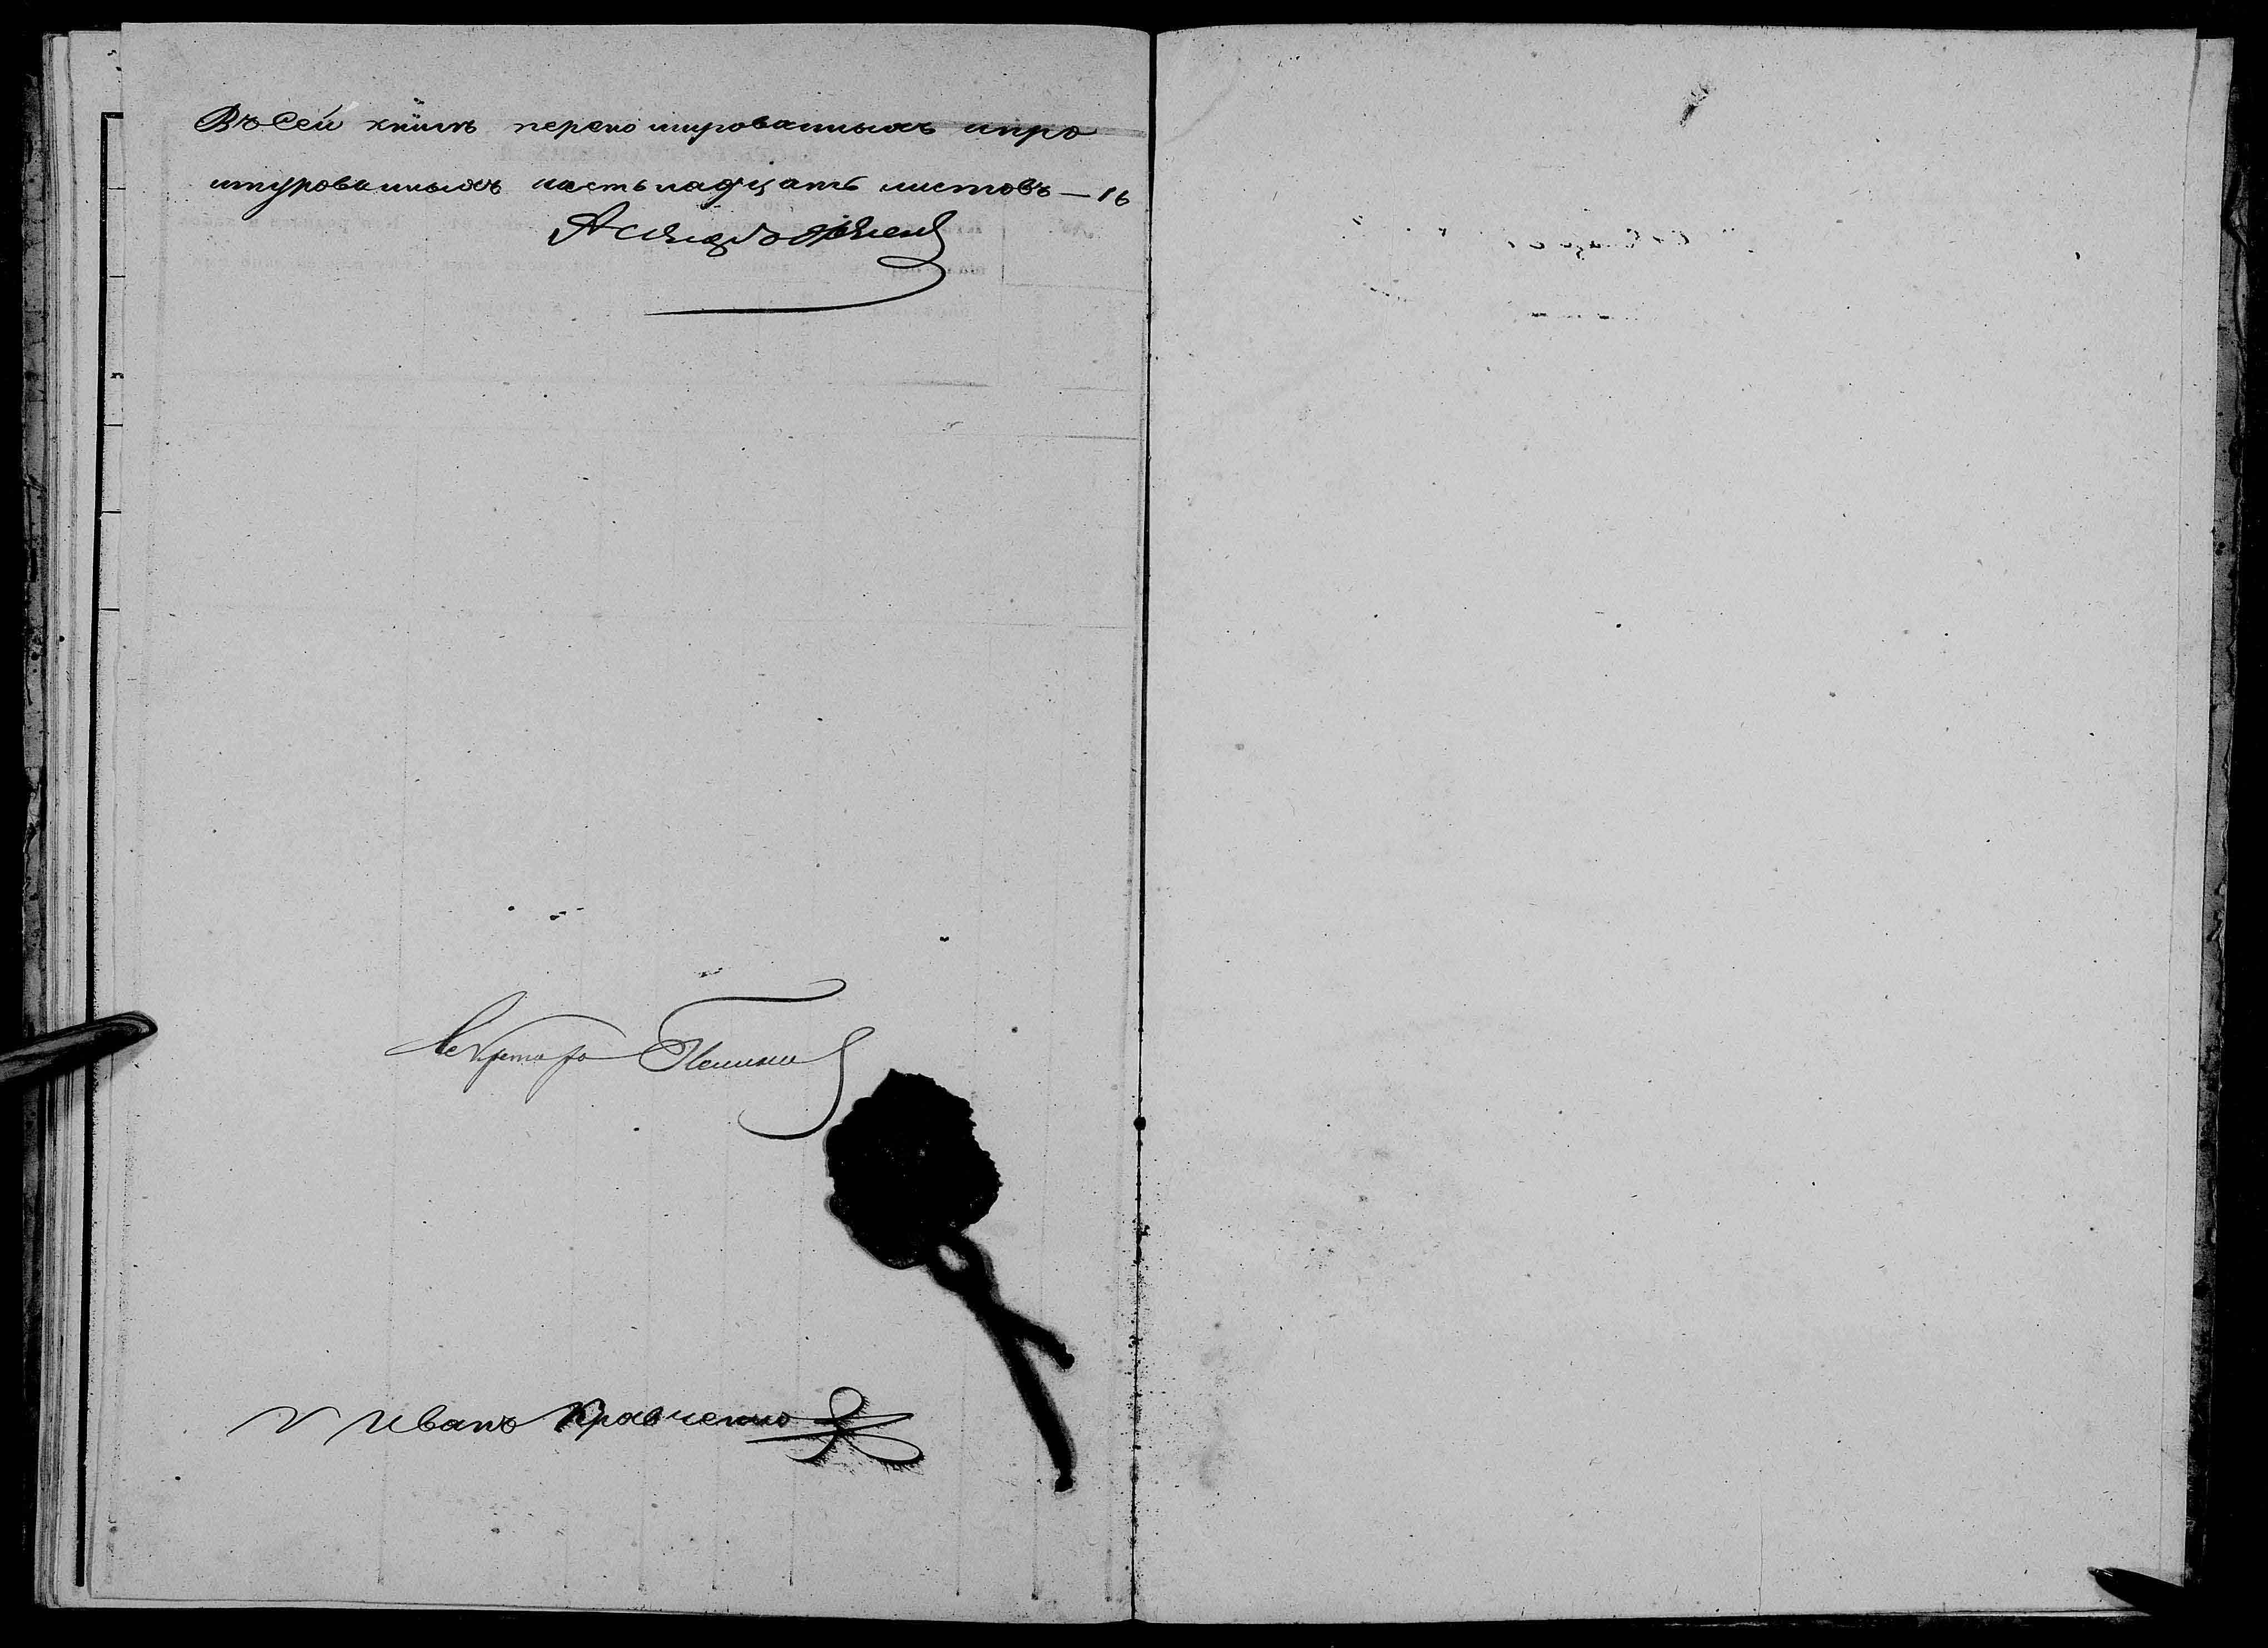 Въ сей книгѣ перено мерованныхъ и про
штурованныхъ шестьнадцать листовъ — 16
Секретарь
И Иванъ Кравченко